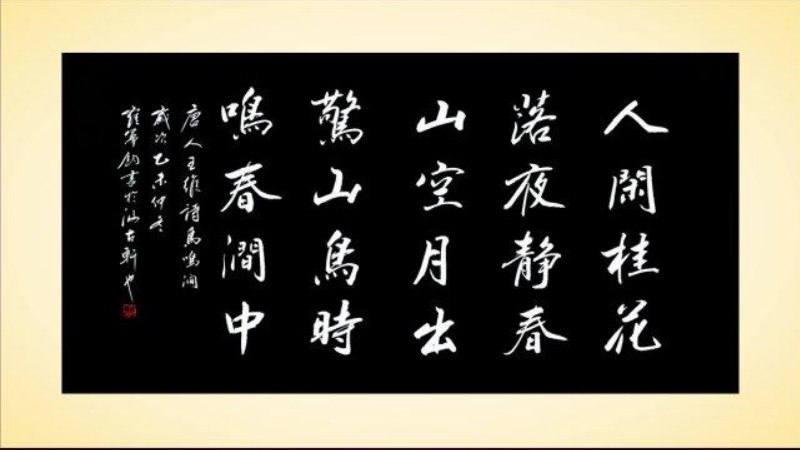 人閑桂花
落夜静春
山空月出
驚山鳥時
鳴春澗中
唐人王維詩鳥鳴澗
歲次乙未仲冬
書於汲古軒也